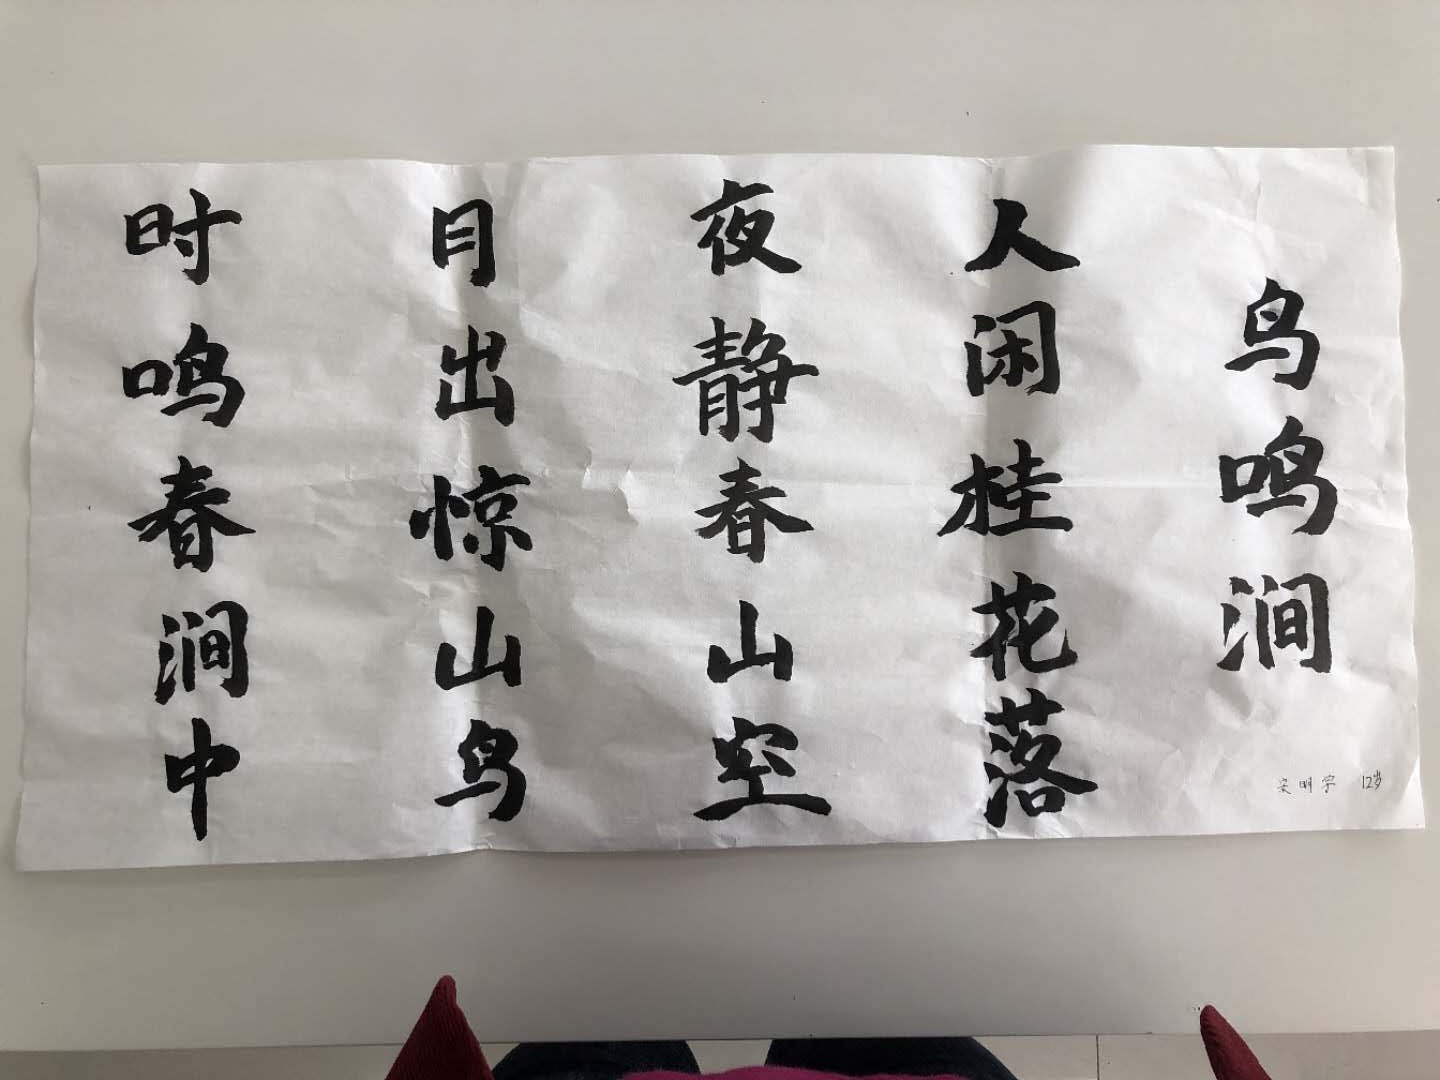 鸟鸣涧
人闲桂花落
夜静春山空
月出惊山鸟
时鸣春涧中
宋明宇 12岁